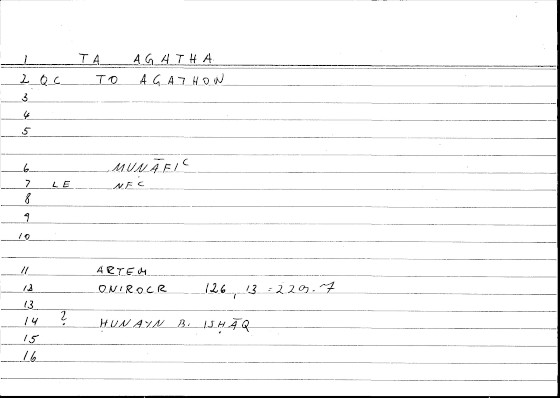 1 TA AGATHA
2 QC TO AGATHON
3
4
5
6 MUNĀFIʿ
7 LE NFʿ
8
9
10
11 ARTEM
12 ONIROCR 126, 13 = 229.7
13
14 ? ḤUNAYN B. ISḤĀQ
15
16